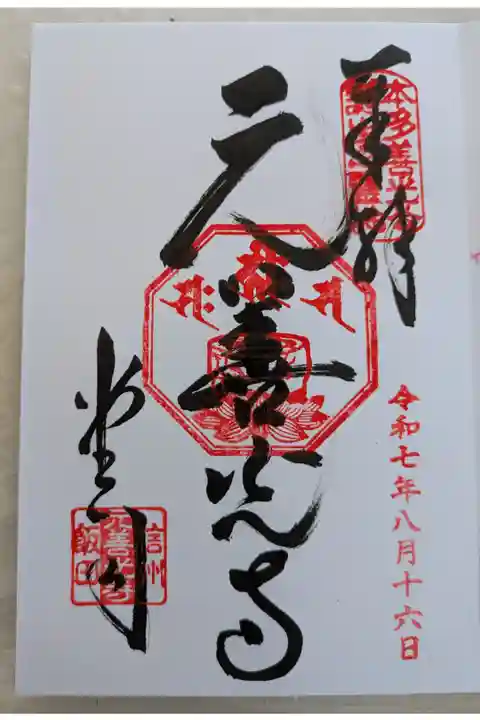 奉拝
本多善光
令和七年八月十六日
元善光寺
堂司
信州
元善光寺
飯田